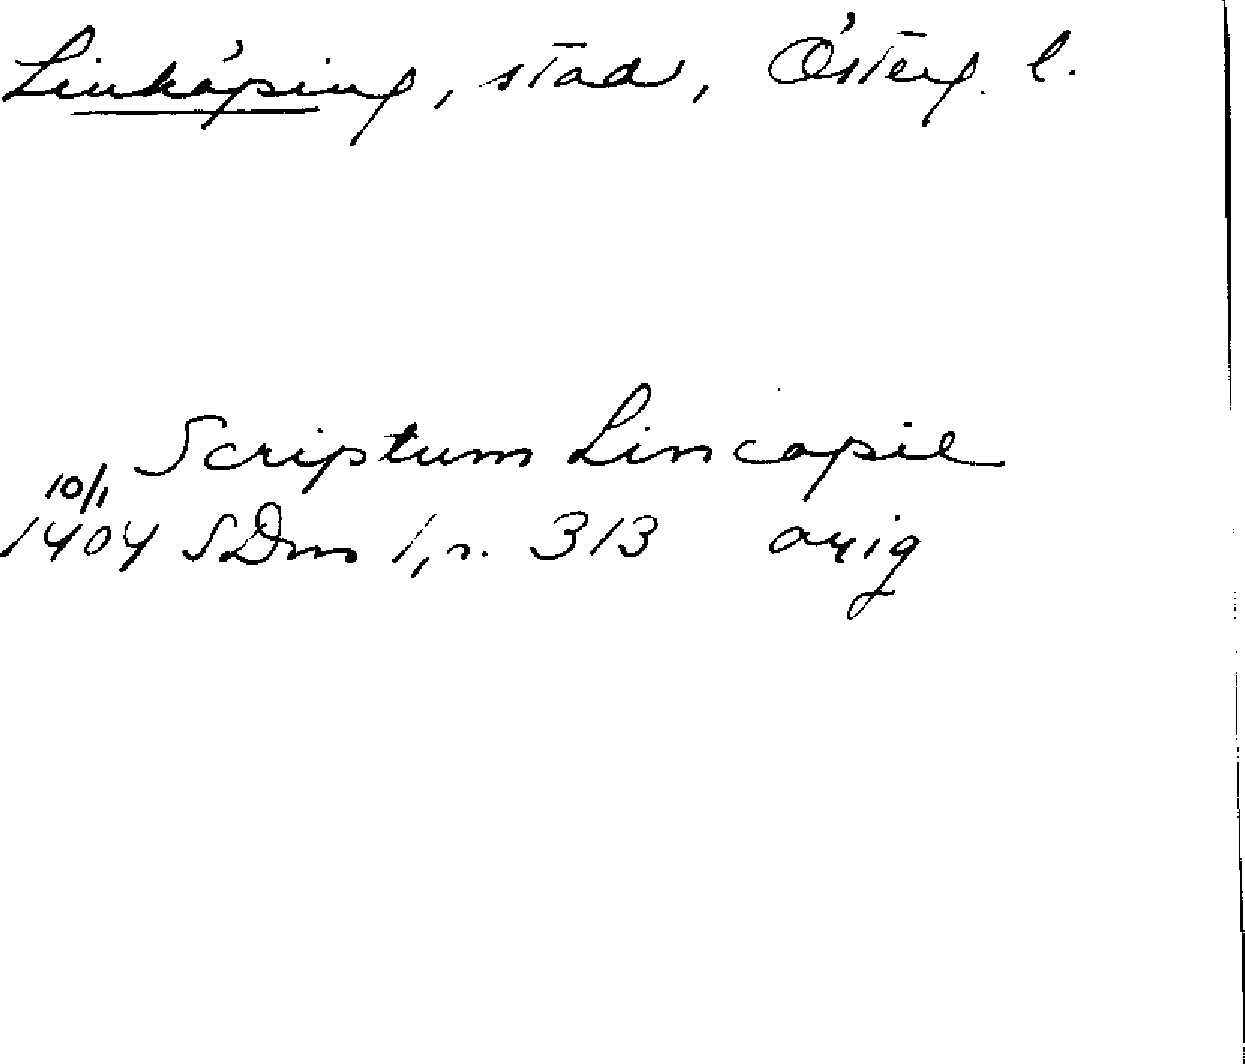 Linköping, stad, Österg. l.
Scriptum Lincopie
10/1
1404 SDns 1, n. 313 orig